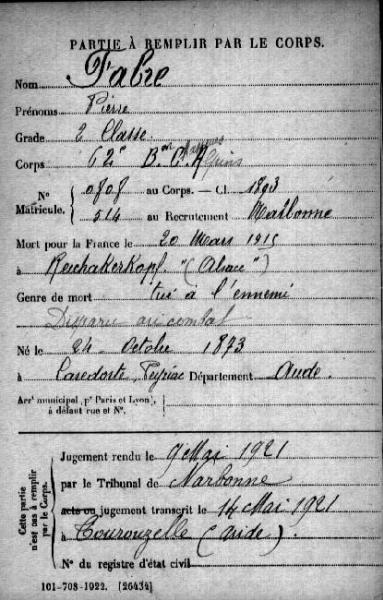 PARTIE À REMPLIR PAR LE CORPS.
Nom Fabre
Prénoms Pierre
Grade 2 Classe.
Corps 62e Bon Ch Alpins
N° Matricule. 0808 au Corps. — Cl. 1893
514 au Recrutement Narbonne
Mort pour la France le 20 Mars 1915
à Reichakerkopf. "(Alsace")
Genre de mort tué à l'ennemi
Disparu au combat
Né le 24 Octobre 1873
à Département Aude.
Arrt municipal, (pr Paris et Lyon), à défaut rue et N°.
Cette partie n'est pas à remplir par le Corps.
Jugement rendu le 9 Mai 1921
par le Tribunal de Narbonne
acte ou jugement transcrit le 14 Mai 1921
à Tourouzelle (Aude).
N° du registre d'état civil
101-708-1922. [26434]